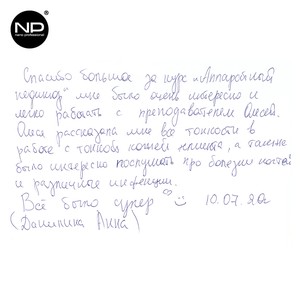 NP
nano professional
Спасибо большое за курс „Аппаратный
педикюр" мне было очень интересно и
легко работать с преподавателем Олесей.
Олеся рассказала мне все тонкости в
работе с тонкой кожей клиента, а также
было интересно послушать про болезни ногтей
и различные инфекции.
Всё было супер 10.07.20г
(Данилина Анна)